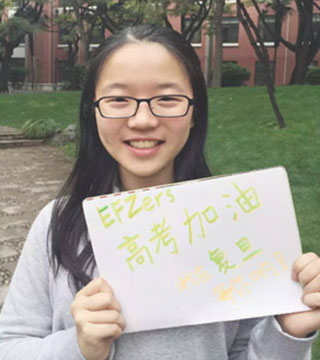 EFZers
高考加油
复旦